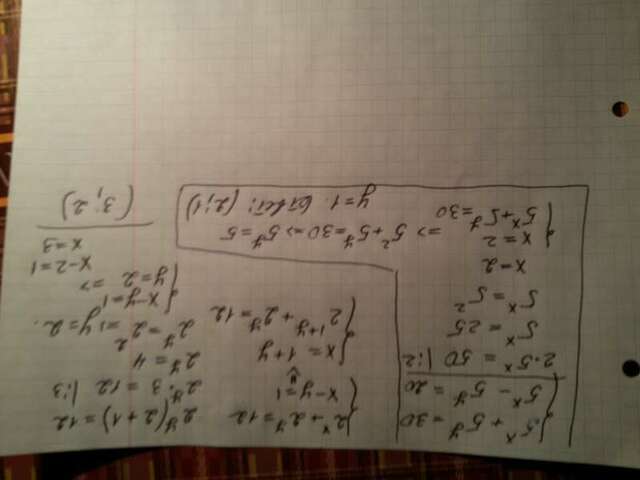 5ˣ + 5ʸ = 30
5ˣ − 5ʸ = 20
2·5ˣ = 50 |:2
5ˣ = 25
5ˣ = 5²
x = 2
x = 2
5ˣ + 5ʸ = 30 => 5² + 5ʸ = 30 => 5ʸ = 5
y = 1. Ответ: (2; 1)
2ˣ + 2ʸ = 12
x − y = 1
⇓
x = 1 + y
2¹⁺ʸ + 2ʸ = 12
2ʸ(2+1) = 12
2ʸ·3 = 12 |:3
2ʸ = 4
2ʸ = 2² => y = 2.
x − y = 1
y = 2 =>
x − 2 = 1
x = 3
(3; 2)